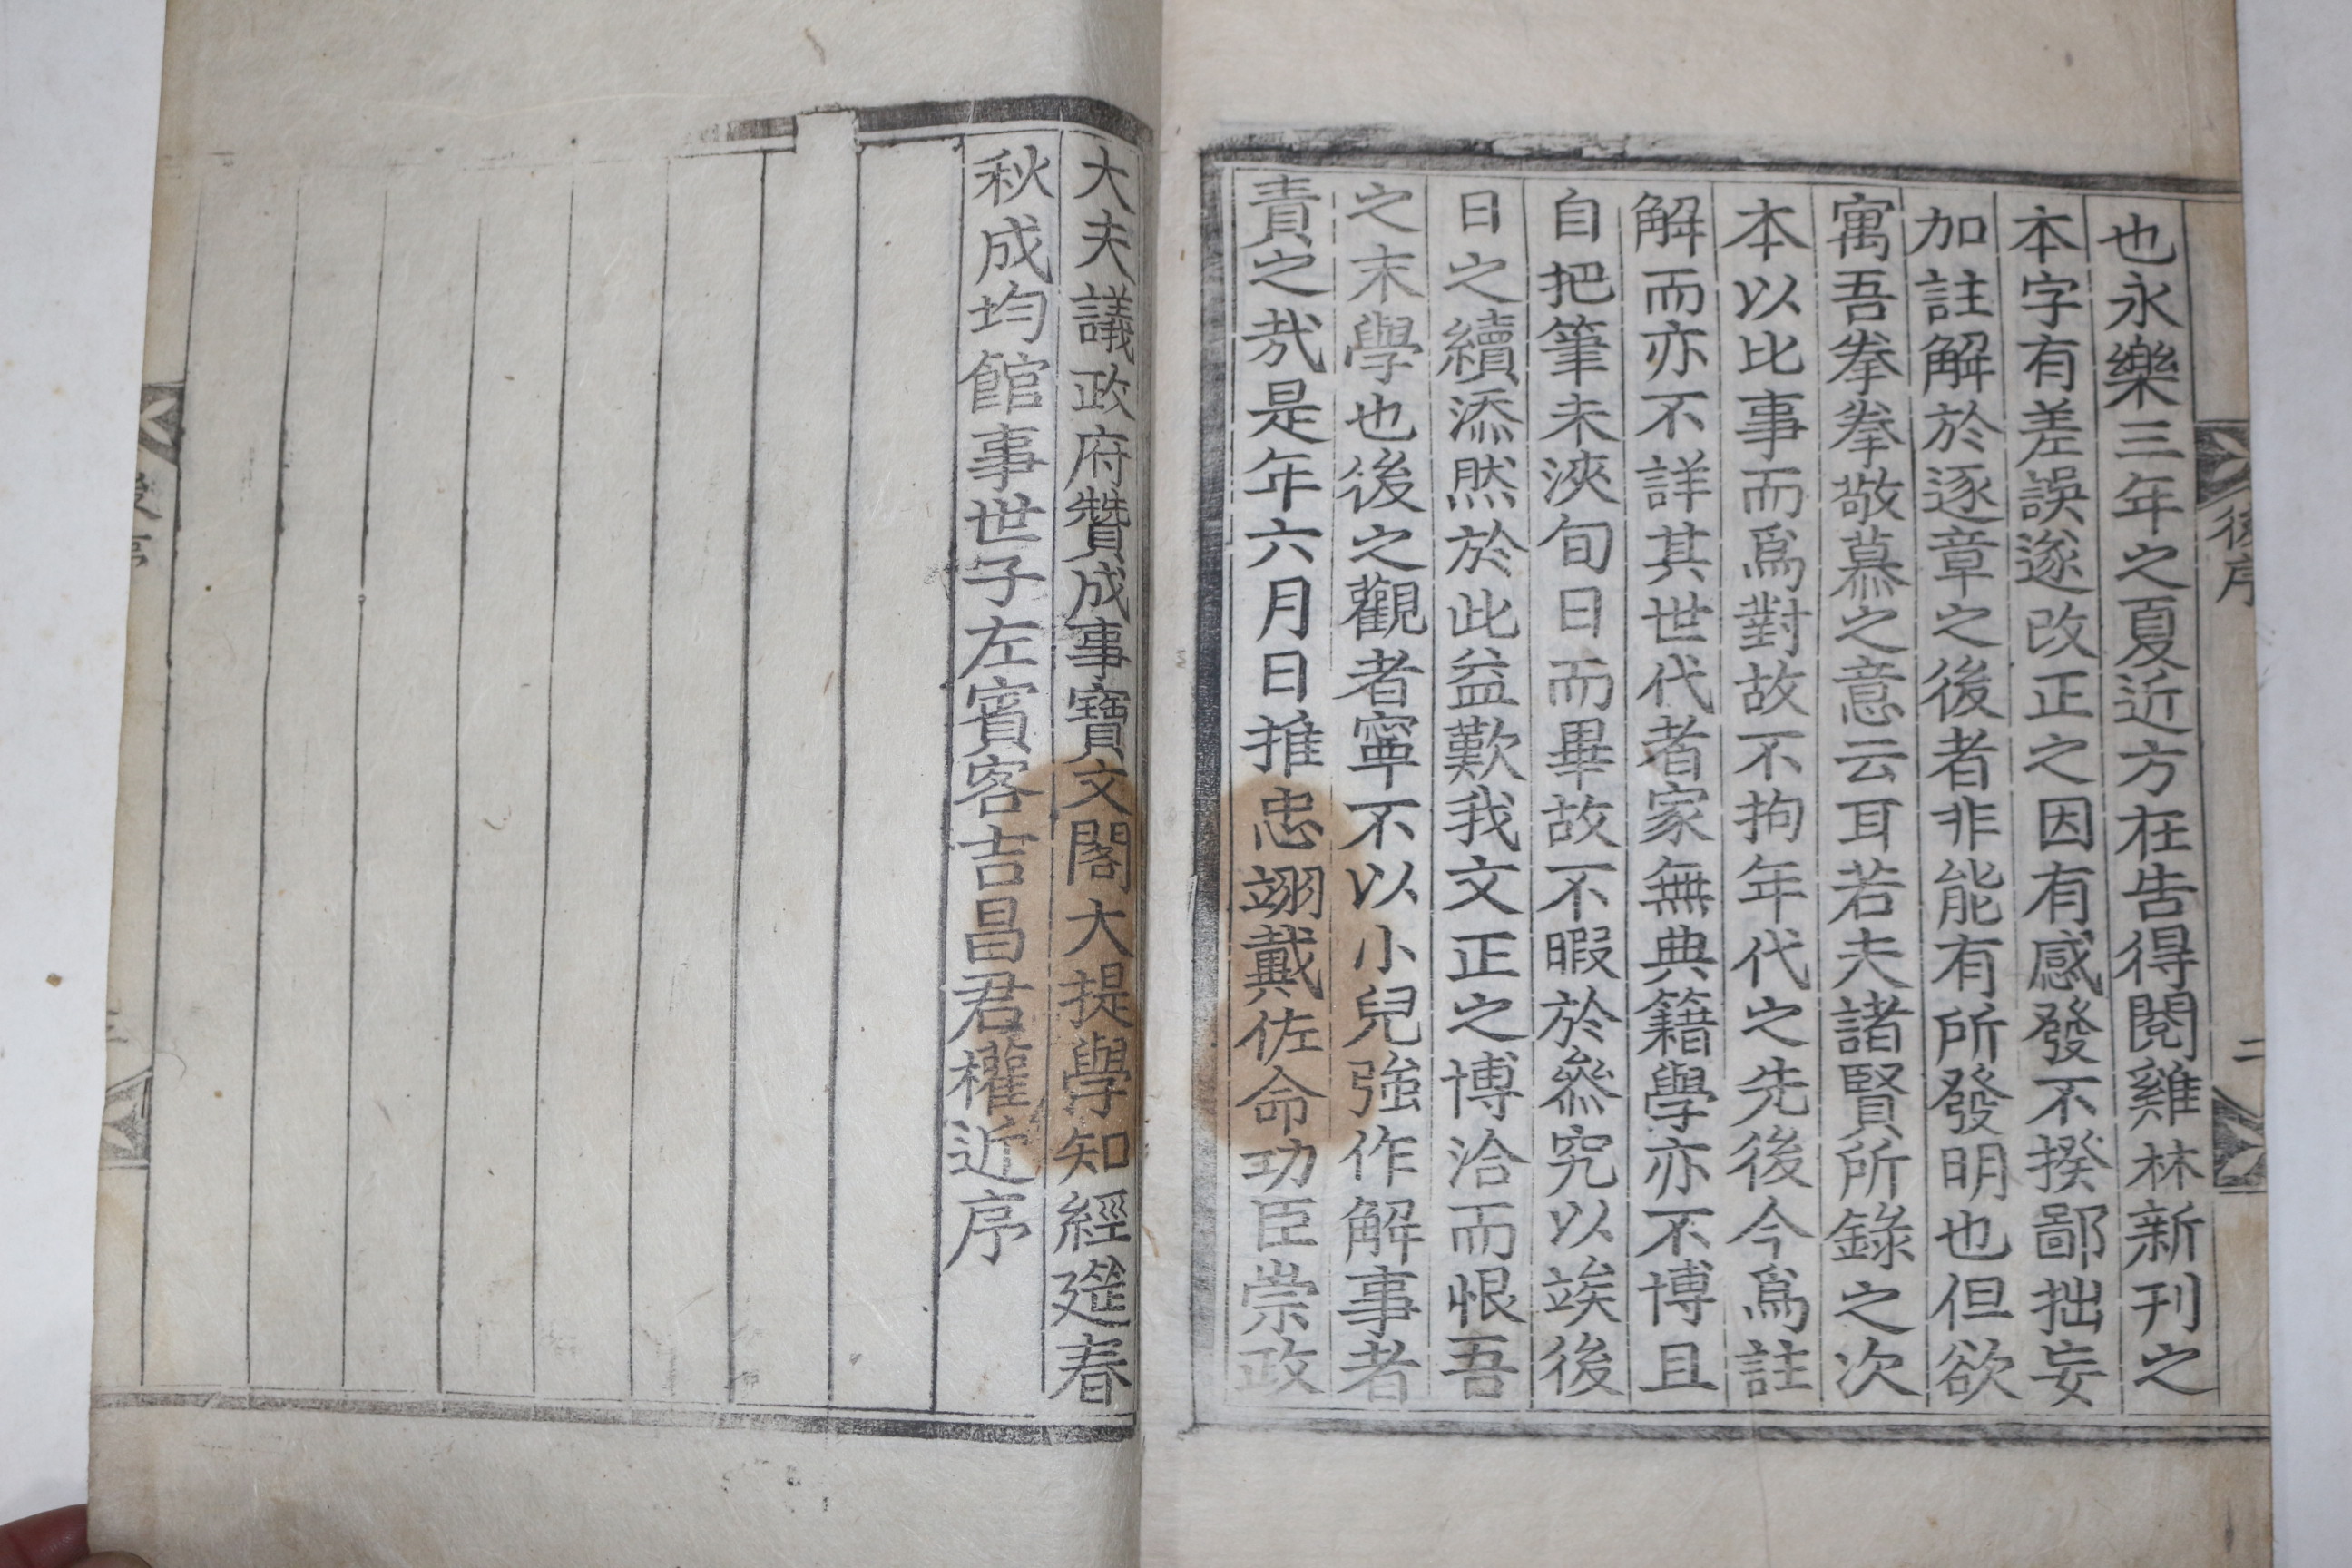 後序
二
也永樂三年之夏近方在告得閱雞林新刊之
本字有差誤遂改正之因有感發不揆鄙拙妄
加註解於逐章之後者非能有所發明也但欲
寓吾拳拳敬慕之意云耳若夫諸賢所錄之次
本以比事而爲對故不拘年代之先後今爲註
解而亦不詳其世代者家無典籍學亦不博且
自把筆未浹旬日而畢故不暇於叅究以竢後
日之續添然於此益歎我文正之博洽而恨吾
之末學也後之觀者寧不以小兒強作解事者
責之㦲是年六月日推忠翊戴佐命功臣崇政
大夫議政府贊成事寶文閣大提學知經筵春
秋成均館事世子左賓客吉昌君權近序